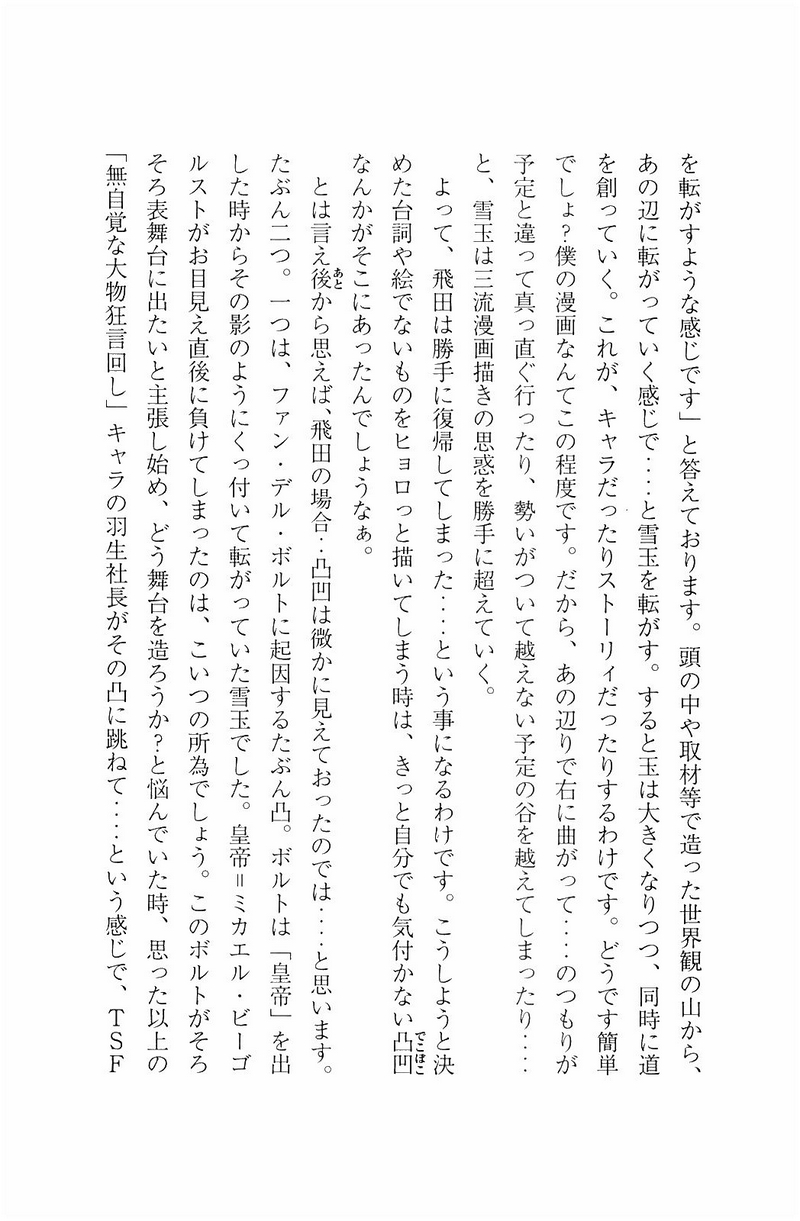 を転がすような感じです」と答えております。頭の中や取材等で造った世界観の山から、
あの辺に転がっていく感じで‥‥と雪玉を転がす。すると玉は大きくなりつつ、同時に道
を創っていく。これが、キャラだったりストーリィだったりするわけです。どうです簡単
でしょ?僕の漫画なんてこの程度です。だから、あの辺りで右に曲がって‥‥のつもりが
予定と違って真っ直ぐ行ったり、勢いがついて越えない予定の谷を越えてしまったり‥‥
と、雪玉は三流漫画描きの思惑を勝手に超えていく。
よって、飛田は勝手に復帰してしまった‥‥という事になるわけです。こうしようと決
めた台詞や絵でないものをヒョロっと描いてしまう時は、きっと自分でも気付かない凸凹でこぼこ
なんかがそこにあったんでしょうなぁ。
とは言え後あとから思えば、飛田の場合‥凸凹は微かに見えておったのでは‥‥と思います。
たぶん二つ。一つは、ファン・デル・ボルトに起因するたぶん凸。ボルトは「皇帝」を出
した時からその影のようにくっ付いて転がっていた雪玉でした。皇帝=ミカエル・ビーゴ
ルストがお目見え直後に負けてしまったのは、こいつの所為でしょう。このボルトがそろ
そろ表舞台に出たいと主張し始め、どう舞台を造ろうか?と悩んでいた時、思った以上の
「無自覚な大物狂言回し」キャラの羽生社長がその凸に跳ねて‥‥という感じで、TSF